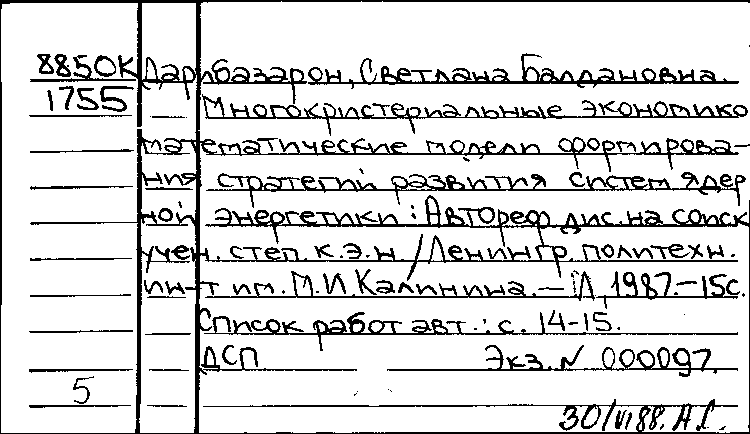 8850К Дарибазарон, Светлана Балдановна.
1755 Многокритериальные экономико
математические модели формирова-
ния стратегий развития систем ядер
ной энергетики : Автореф. дис. на соиск
учен. степ. к.э.н. / Ленингр. политехн.
ин-т им. М.И. Калинина. — Л, 1987. – 15с.
Список работ авт.: с. 14-15.
ДСП Экз. N 000097.
5
30/VI 88. А.С.